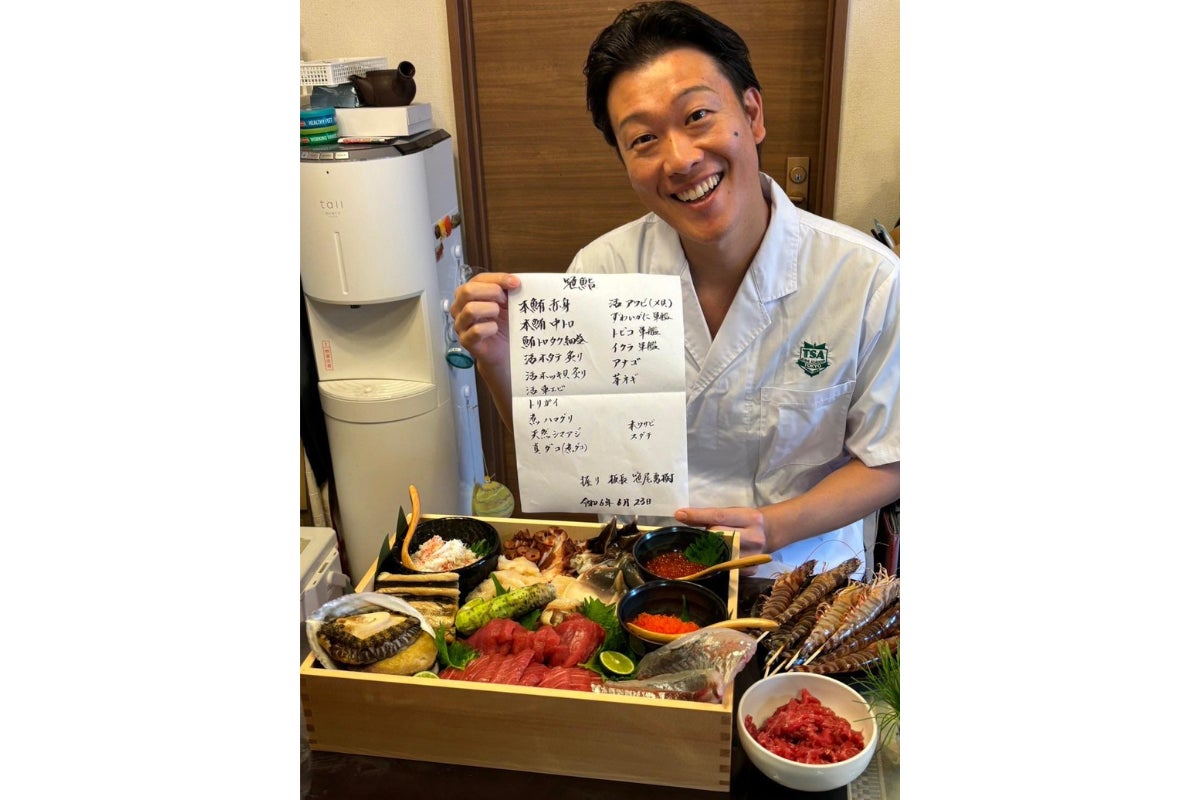 tall
本鮪 赤身
本鮪 中トロ
鮪トロタク細巻
活ホタテ 炙り
活ホッキ貝 炙り
活車エビ
トリガイ
煮ハマグリ
天然シマアジ
真ダコ(煮ダコ)
活アワビ(メ貝)
ずわいがに 軍艦
トビコ 軍艦
イクラ 軍艦
アナゴ
芽ネギ
本ワサビ
スダチ
握り 板長
令和6年6月23日
TSA
TOKYO